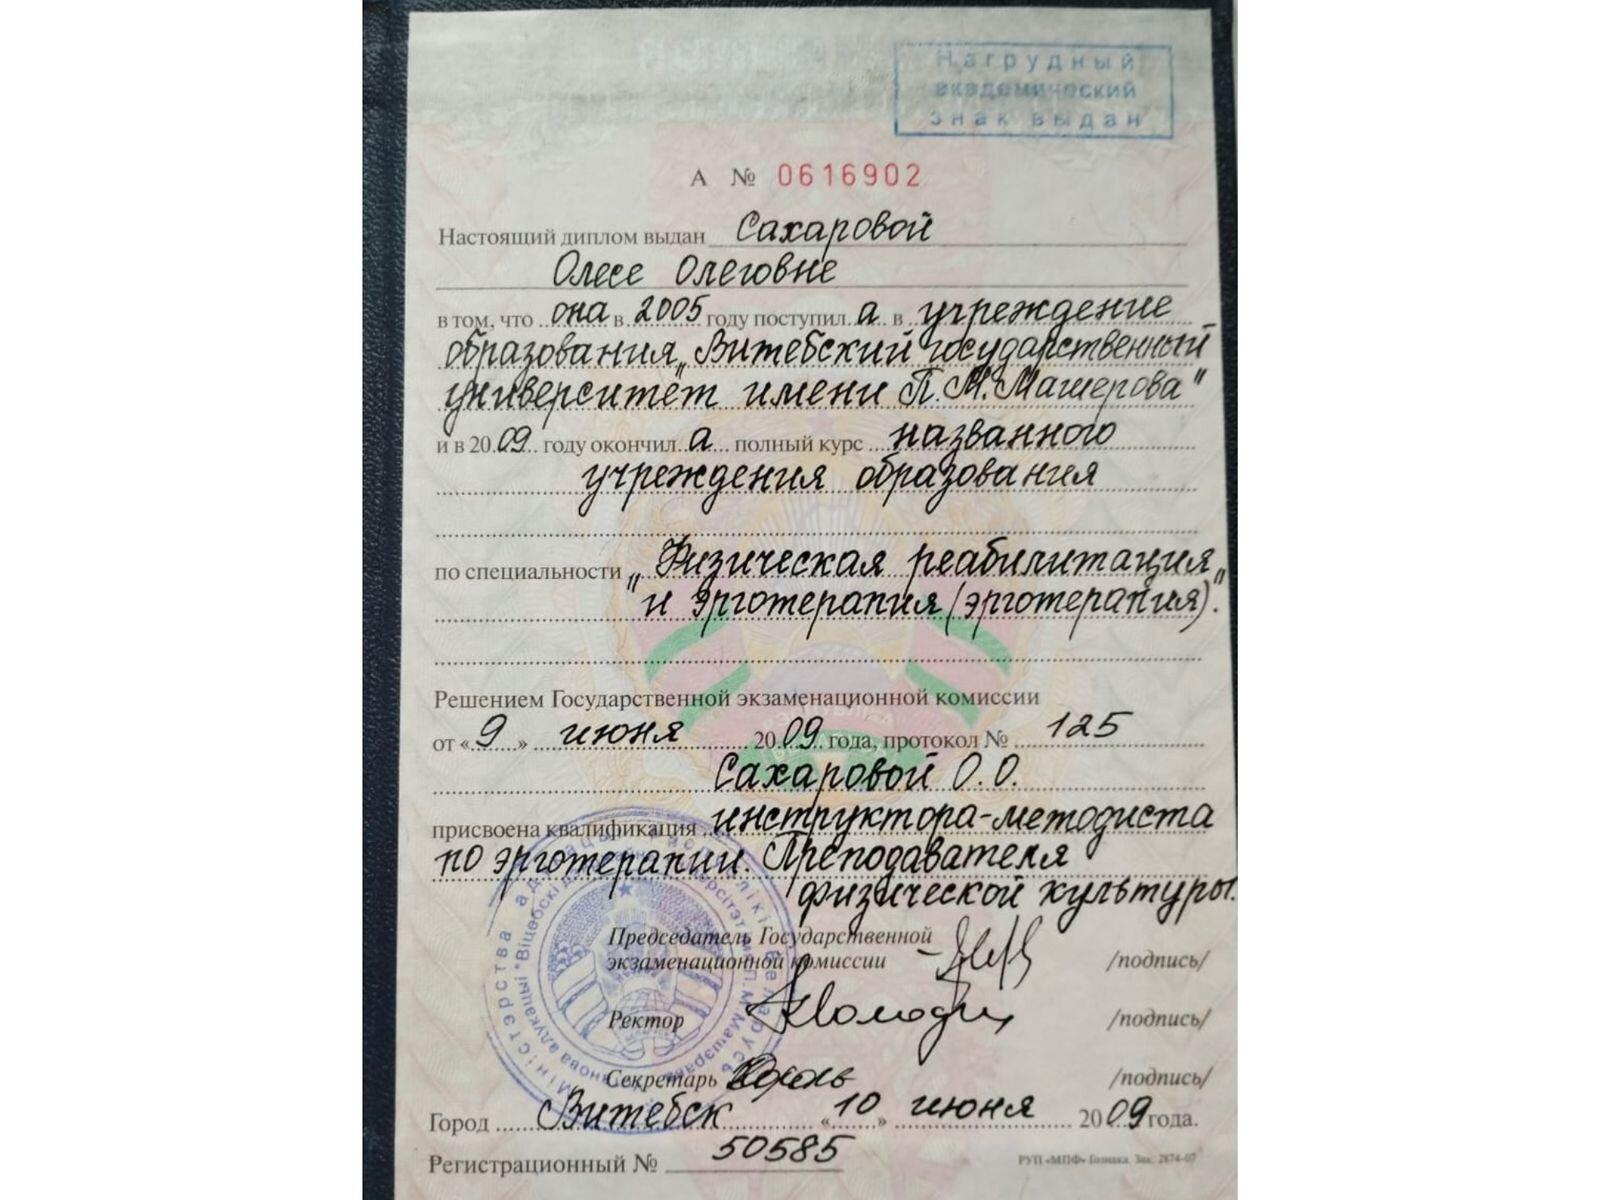 Нагрудный
академический
знак выдан
А № 0616902
Настоящий диплом выдан Сахаровой
Олесе Олеговне
в том, что она в 2005 году поступил а в учреждение
образования „Витебский государственный
университет имени П.М.Машерова"
и в 2009 году окончил а полный курс названного
учреждения образования
по специальности „Физическая реабилитация
и эрготерапия (эрготерапия)".
Решением Государственной экзаменационной комиссии
от «9» июня 2009 года, протокол № 125
Сахаровой О.О.
присвоена квалификация инструктора-методиста
по эрготерапии. Преподавателя
физической культуры.
Председатель Государственной
экзаменационной комиссии /подпись/
Ректор /подпись/
Секретарь /подпись/
Город Витебск «10» июня 2009 года.
Регистрационный № 50585
РУП «МПФ» Гознака. Зак. 2874-07
Міністэрства адукацыі Рэспублікі Беларусь